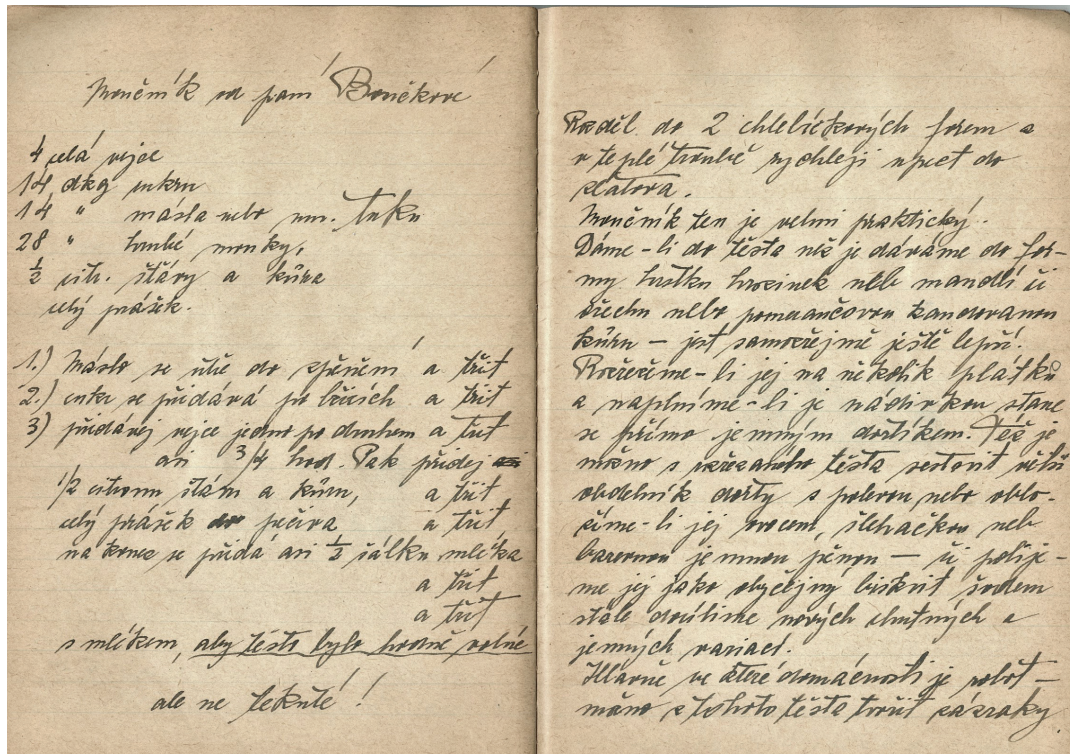 Moučník od paní Boučkové
4 celá vejce
14 dkg cukru
14 " másla nebo um. tuku
28 " hrubé mouky,
½ citr. šťávy a kůra
celý prášek.
1.) Máslo se utře do zpěnění a třít
2.) cukr se přidává po lžících a třít
3) přidávej vejce jedno po druhém a třít
asi ¾ hod. Pak přidej
1/2 citronu šťávu a kůru, a třít
celý prášek do pečiva a třít
na konec se přidá asi ½ šálku mléka
a třít
a třít
s mlékem, aby těsto bylo hodně volné
ale ne tekuté!
Rozděl do 2 chlebíčkových forem a
v teplé troubě rychleji upect do
zlatova.
Moučník ten je velmi praktický.
Dáme-li do těsta než je dáváme do for-
my hrstku hrozinek neb mandlí či
ořechu nebo pomerančovou kandovanou
kůru – jest samozřejmě ještě lepší.
Rozřežeme-li jej na několik plátků
a naplníme-li je nádivkou stane
se přímo jemným dortíkem. Též je
možno s uřezaného těsta sestavit větší
obdelník dorty s polevou, nebo oblo-
žíme-li jej ovocem, šlehačkou neb
barevnou jemnou pěnou – či polije-
me jej jako obyčejný biskvit šodem
stále docílíme nových chutných a
jemných variací.
Hlavně ve které domácnosti je
s tohoto těsta tvořit zázraky